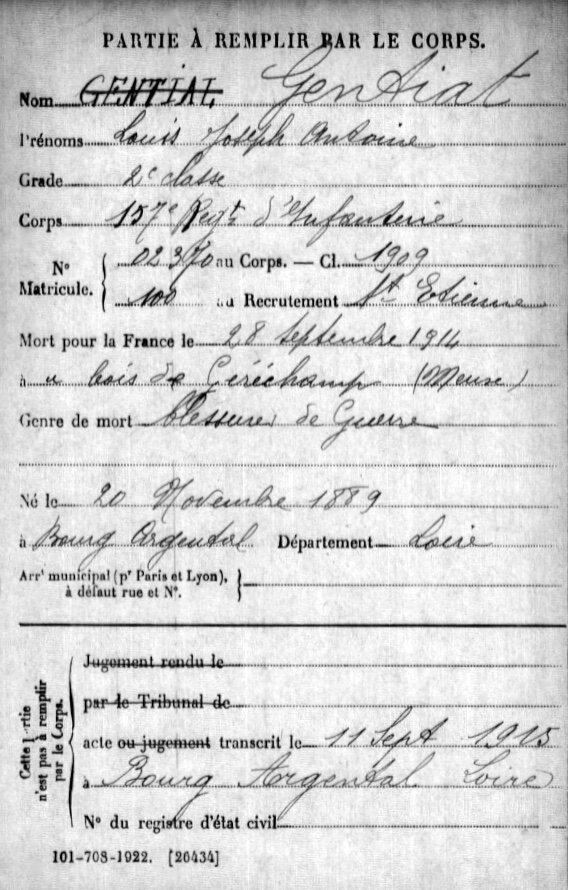 PARTIE À REMPLIR PAR LE CORPS.
Nom GENTIAL Gentiat
Prénoms Louis Joseph Antoine
Grade 2e classe
Corps 157e Regt d'Infanterie
N° Matricule. 02370 au Corps. — Cl. 1909
100 au Recrutement St Etienne
Mort pour la France le 28 septembre 1914
à u bois de Géréchamp (Meuse)
Genre de mort blessures de Guerre
Né le 20 Novembre 1889
à Bourg Argental Département Loire
Arrt municipal (pr Paris et Lyon),
à défaut rue et N°.
Cette partie n'est pas à remplir par le Corps.
Jugement rendu le
par le Tribunal de
acte ou jugement transcrit le 11 Sept 1915
à Bourg Argental Loire
N° du registre d'état civil
101-708-1922. [26434]